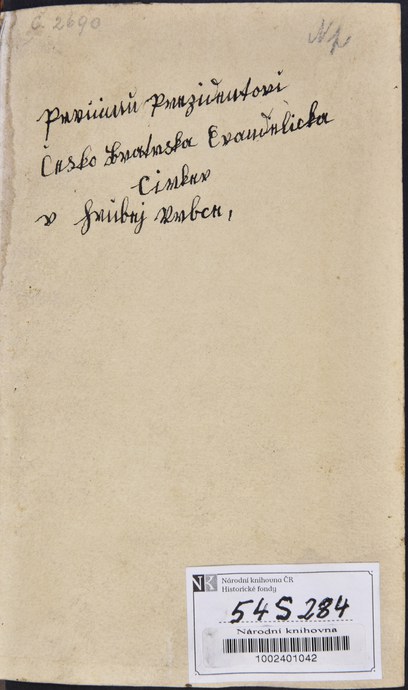 C 2690
Prvímu Prezidentovi
Česko Bratrska Evandělicka
Cirkev
v Hrubej Vrbce,
NK Národní knihovna ČR
Historické fondy
54 S 284
Národní knihovna
1002401042